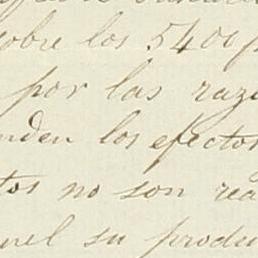 sobre los 5400 p
por las raz
nden los efectos
tos no son rea
nel su produ